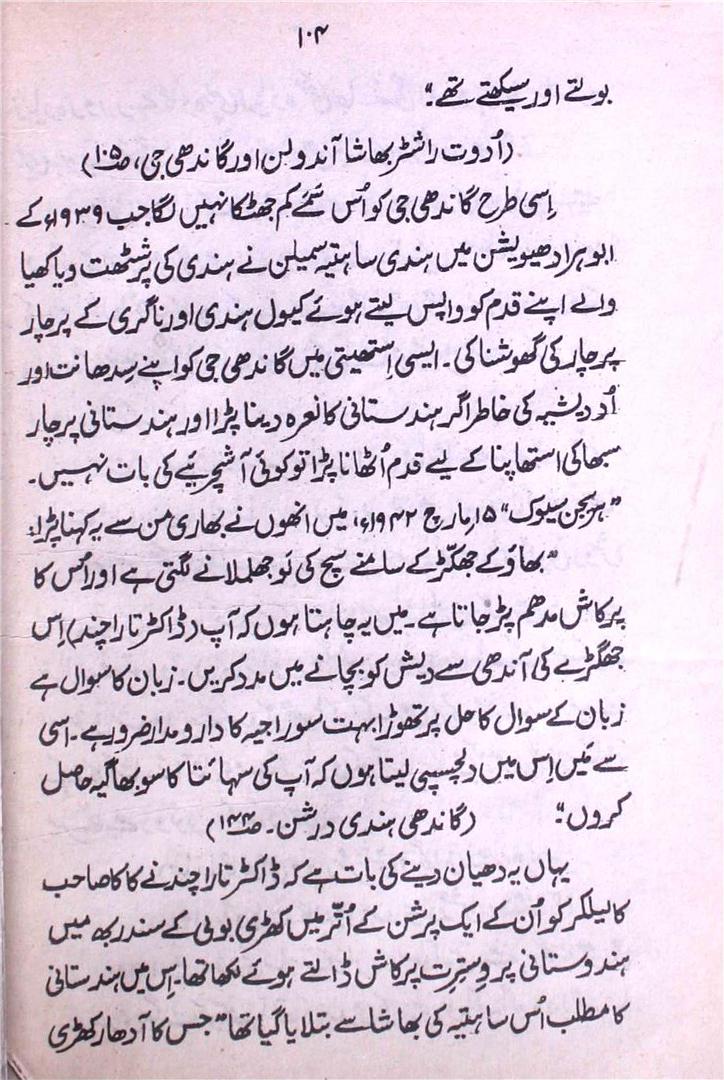 ۱۰۴
بولتے اور سیکھتے تھے۔“
(اُدوت راشٹر بھاشا آندولن اور گاندھی جی، صـ۱۰۵)
اِسی طرح گاندھی جی کو اُس سَمَے کم جھٹکا نہیں لگا جب ۱۹۳۹ء کے
ابوہر ادھیویشن میں ہندی ساہتیہ سمیلن نے ہندی کی پَرشٹھت ویاکھیا
والے اپنے قدم کو واپس لیتے ہوئے کیول ہندی اور ناگری کے پرچار
پرچار کی گھوشنا کی۔ ایسی اِستھیتی میں گاندھی جی کو اپنے سِدھانت اور
اُددیشیہ کی خاطر اگر ہندستانی کا نعرہ دینا پڑا اور ہندستانی پرچار
سبھا کی استھاپنا کے لیے قدم اُٹھانا پڑا تو کوئی آشچریئے کی بات نہیں۔
”ہریجن سیوک“ ۱۵؍مارچ ۱۹۴۲ء، میں انھوں نے بھاری من سے یہ کہنا پڑا:
”بھاؤ کے جھکّڑ کے سامنے سچ کی لَو جھلملانے لگتی ہے اور اُس کا
پرکاش مدھم پڑ جاتا ہے۔ میں یہ چاہتا ہوں کہ آپ (ڈاکٹر تارا چند) اِس
جھگڑے کی آندھی سے دیش کو بچانے میں مدد کریں۔ زبان کا سوال ہے
زبان کے سوال کا حل پر تھوڑا بہت سوراجیہ کا دارومدار ضرور ہے۔ اسی
سے مَیں اِس میں دلچسپی لیتا ہوں کہ آپ کی سہائتا کا سوبھاگیہ حاصل
کروں۔“ (گاندھی ہندی درشن۔ صـ۱۴۴)
یہاں یہ دھیان دینے کی بات ہے کہ ڈاکٹر تارا چند نے کاکا صاحب
کالیلکر کو اُن کے ایک پرشن کے اُتّر میں کھڑی بولی کے سندربھ میں
ہندوستانی پر وِسترت پرکاش ڈالتے ہوئے لکھا تھا۔ اِس میں ہندستانی
کا مطلب اُس ساہتیہ کی بھاشا سے بتلایا گیا تھا ”جس کا آدھار کھڑی